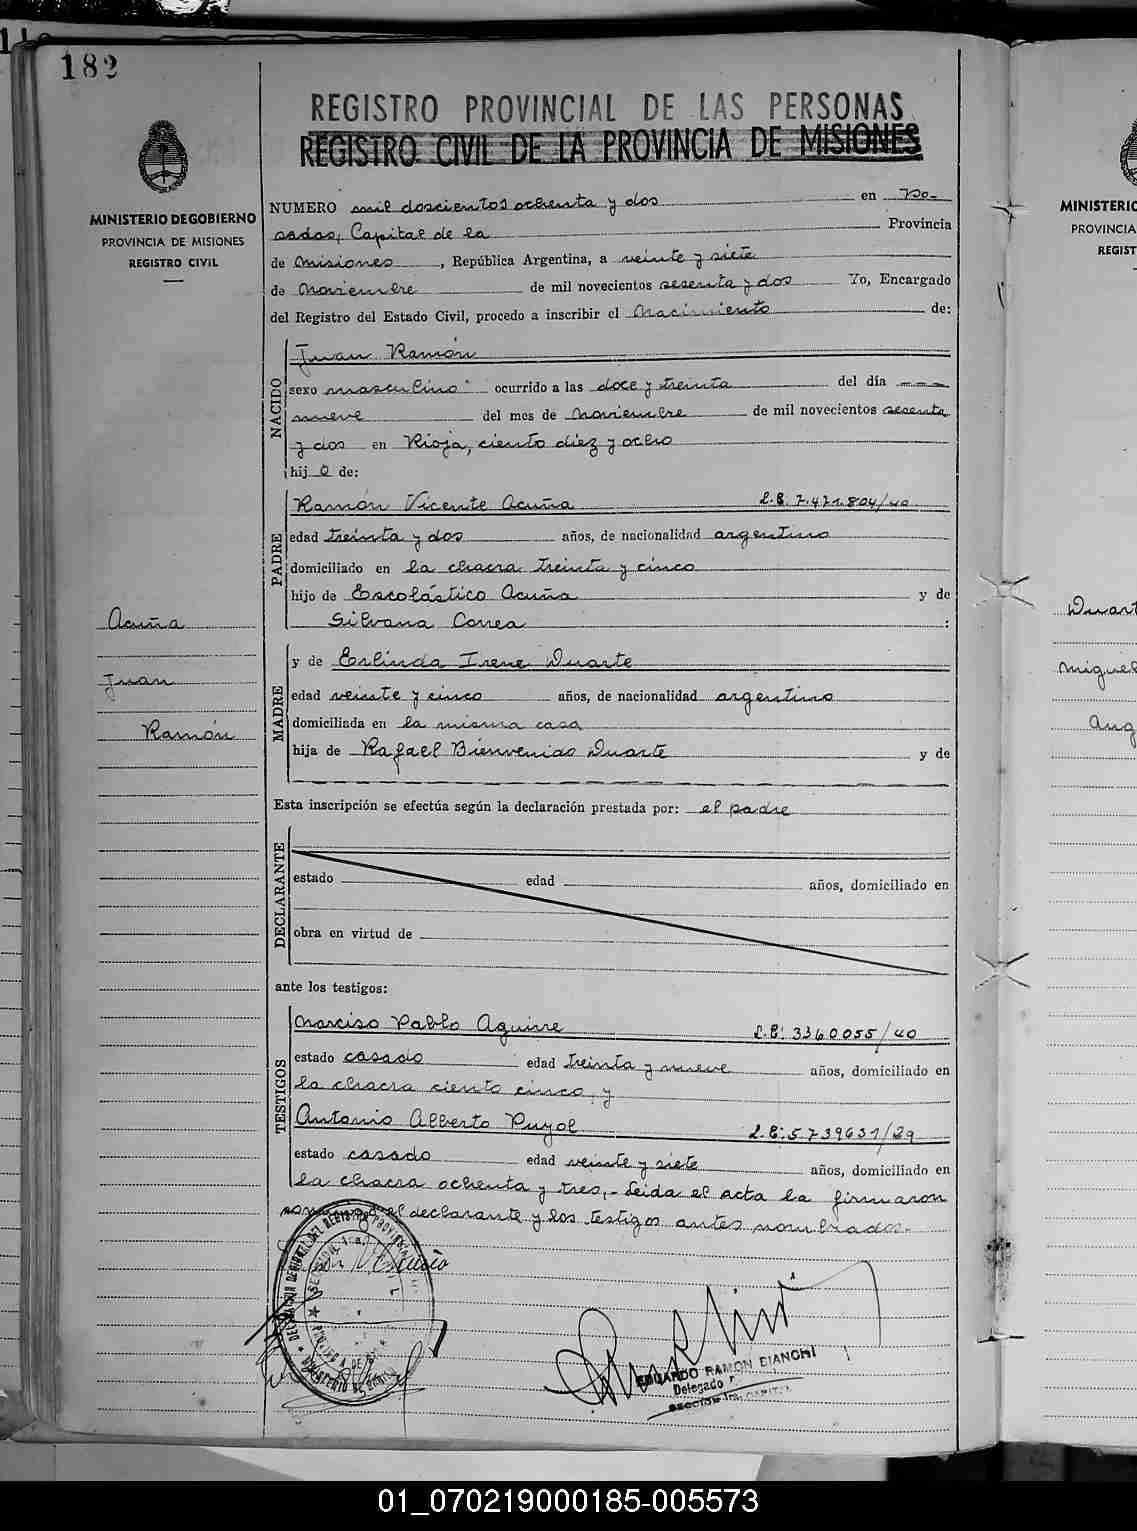 182
MINISTERIO DE GOBIERNO
PROVINCIA DE MISIONES
REGISTRO CIVIL
REGISTRO PROVINCIAL DE LAS PERSONAS
REGISTRO CIVIL DE LA PROVINCIA DE MISIONES
NUMERO mil doscientos ochenta y dos en Po-
sadas, Capital de la Provincia
de Misiones, República Argentina, a veinte y siete
de Noviembre de mil novecientos sesenta y dos Yo, Encargado
del Registro del Estado Civil, procedo a inscribir el Nacimiento de:
NACIDO
Juan Ramón
sexo masculino ocurrido a las doce y treinta del día ---
nueve del mes de Noviembre de mil novecientos sesenta
y dos en Rioja, ciento diez y ocho
hijo de:
PADRE
Ramón Vicente Acuña L.E: 7.471.804/40
edad treinta y dos años, de nacionalidad argentino
domiciliado en la chacra treinta y cinco
hijo de Escolástico Acuña y de
Silvana Correa :
Acuña
Juan
Ramón
MADRE
y de Erlinda Irene Duarte
edad veinte y cinco años, de nacionalidad argentino
domiciliada en la misma casa
hija de Rafael Bienvenido Duarte y de
Esta inscripción se efectúa según la declaración prestada por: el padre
DECLARANTE
estado edad años, domiciliado en
obra en virtud de
ante los testigos:
TESTIGOS
Narciso Pablo Aguirre L.E: 3360055/40
estado casado edad treinta y nueve años, domiciliado en
la chacra ciento cinco, y
Antonio Alberto Puyol L.E: 5.739631/29
estado casado edad veinte y siete años, domiciliado en
la chacra ochenta y tres,- Leida el acta la firmaron
conmigo el declarante y los testigos antes nombrados.-
EDUARDO RAMON BIANCHI
Delegado
SECCION 1ra. CAPITAL
MINISTERIO
PROVINCIA
REGIST
Duart
Miguel
Ang
01_070219000185-005573